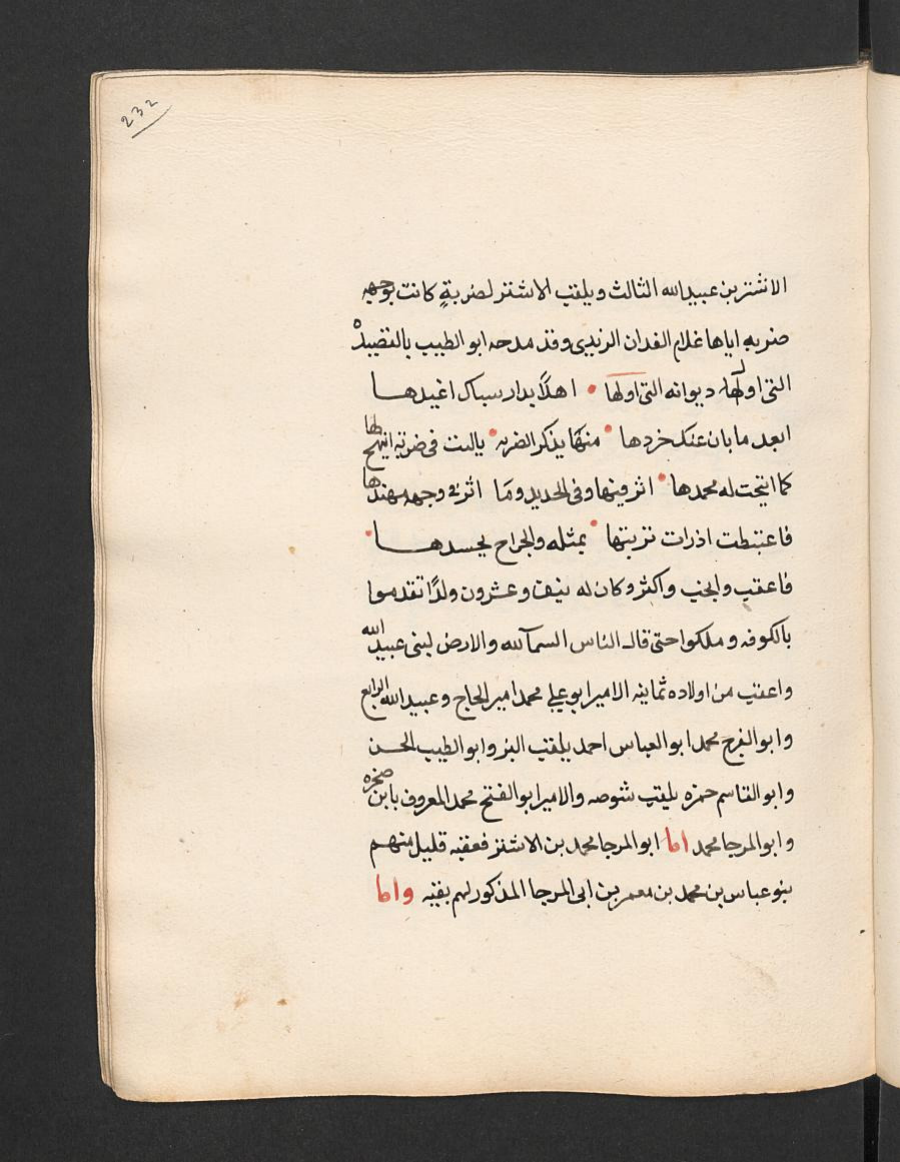 232
الاشتر بن عبيدالله الثالث ويلقب الاشتر لضربةٍ كانت بوجهه
ضربه اياها غلام الفدان الزيدى وقد مدحه ابو الطيب بالقصيدْه
التى اولها ديوانه التى اولها • اهلاً بدار سباك اغيدهـا
ابعد مابان عنك خردها • منها يذكر الضربه • ياليت فى ضربة اتيح لها
كما اتيحت له محمدها • اثر فيها وفى الحديد ومَا اثر فى وجهه مهندها
فاعتبطت اذرات تزينها • بمثله والجراح يحسدهـا •
فاعقب وانجب واكثر وكان له نيف وعشرون ولدًا تقدموا
بالكوفه وملكوا حتى قال الناس السمآ لله والارض لبنى عبيدالله
واعقب من اولاده ثمانيه الامير ابو على محمد امير الحاج وعبيدالله الرابع
وابو الفرج محمد ابو العباس احمد يلقب البز وابو الطيب الحسن
وابو القاسم حمزه يلقب شوصه والامير ابو الفتح محمد المعروف بابن صخره
وابو المرجا محمد اما ابو المرجا محمد بن الاشتر فعقبه قليل منهم
بنو عباس بن محمد بن معمر بن ابى المرجا المذكور لهم بقيه واما